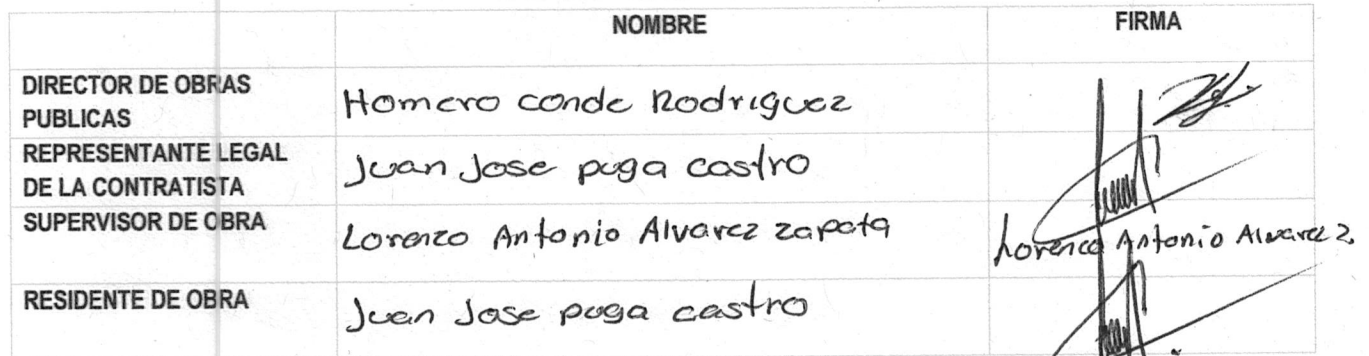 NOMBRE FIRMA
DIRECTOR DE OBRAS
PUBLICAS
Homero conde Rodriguez
REPRESENTANTE LEGAL
DE LA CONTRATISTA
Juan Jose puga castro
SUPERVISOR DE OBRA
Lorenzo Antonio Alvarez zapata
Lorenzo Antonio Alvarez Z.
RESIDENTE DE OBRA
Juan Jose puga castro